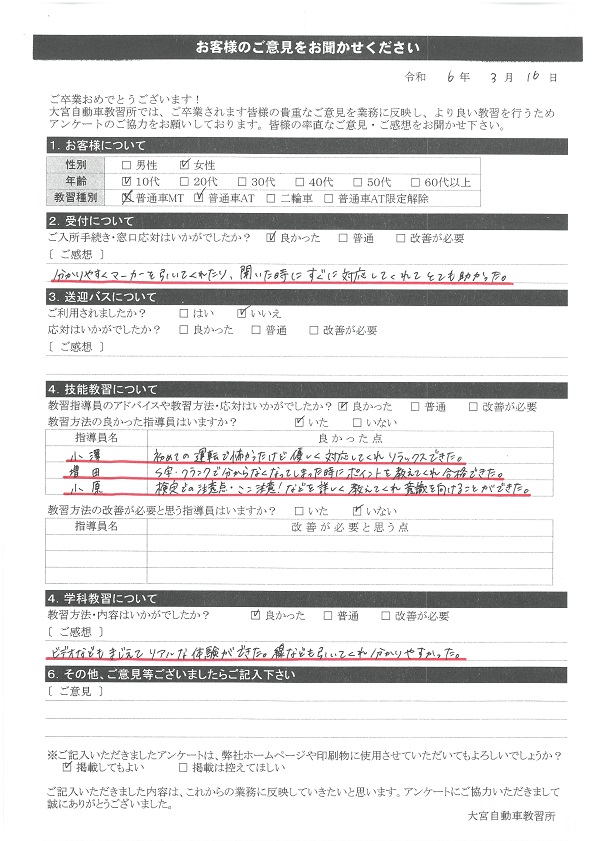 お客様のご意見をお聞かせください
令和 6年 3月 16日
ご卒業おめでとうございます!
大宮自動車教習所では、ご卒業されます皆様の貴重なご意見を業務に反映し、より良い教習を行うため
アンケートのご協力をお願いしております。皆様の率直なご意見・ご感想をお聞かせ下さい。
1. お客様について
性別 □ 男性 ☑ 女性
年齢 ☑ 10代 □ 20代 □ 30代 □ 40代 □ 50代 □ 60代以上
教習種別 ☒ 普通車MT ☑ 普通車AT □ 二輪車 □ 普通車AT限定解除
2. 受付について
ご入所手続き・窓口応対はいかがでしたか? ☑ 良かった □ 普通 □ 改善が必要
〔 ご感想 〕
分かりやすくマーカーを引いてくれたり、聞いた時にすぐに対応してくれてとても助かった。
3. 送迎バスについて
ご利用されましたか? □ はい ☑ いいえ
応対はいかがでしたか? □ 良かった □ 普通 □ 改善が必要
〔 ご感想 〕
4. 技能教習について
教習指導員のアドバイスや教習方法・応対はいかがでしたか? ☑ 良かった □ 普通 □ 改善が必要
教習方法の良かった指導員はいますか? ☑ いた □ いない
指導員名 良かった点
小澤 初めての運転で怖かったけど優しく対応してくれリラックスできた。
増田 S字・クランクで分からなくなってしまった時にポイントを教えてくれ合格できた。
小原 検定での注意点・ここ注意!などを詳しく教えてくれ意識を向けることができた。
教習方法の改善が必要と思う指導員はいますか? □ いた ☑ いない
指導員名 改善が必要と思う点
4. 学科教習について
教習方法・内容はいかがでしたか? ☑ 良かった □ 普通 □ 改善が必要
〔 ご感想 〕
ビデオなどもまじえてリアルな体験ができた。線なども引いてくれ分かりやすかった。
6. その他、ご意見等ございましたらご記入下さい
〔 ご意見 〕
※ご記入いただきましたアンケートは、弊社ホームページや印刷物に使用させていただいてもよろしいでしょうか?
☑ 掲載してもよい □ 掲載は控えてほしい
ご記入いただきました内容は、これからの業務に反映していきたいと思います。アンケートにご協力いただきまして
誠にありがとうございました。
大宮自動車教習所